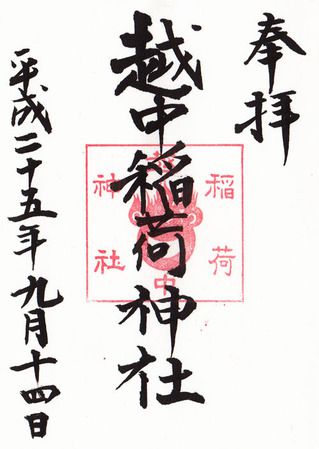 奉拝
越中稲荷神社
平成二十五年九月十四日
越
稲荷
中
神社